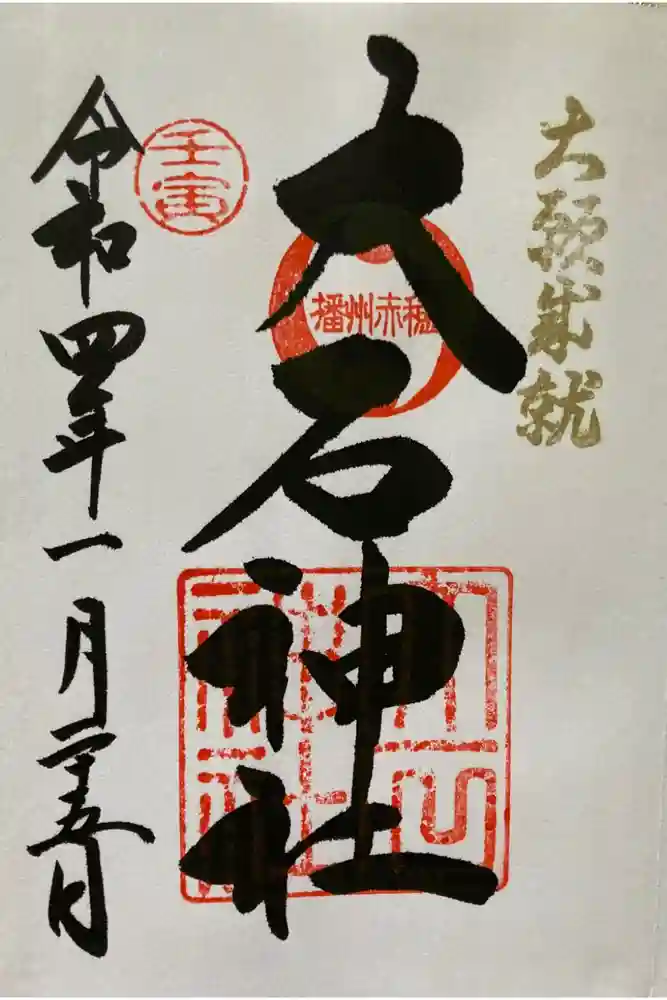 大願成就
大石神社
播州赤穂
壬寅
令和四年一月二十五日